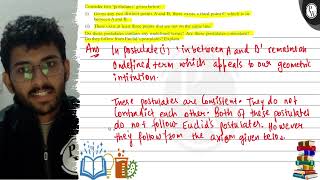 Consider two 'postulates' given below:
(i) Given any two distinct points A and B, there exists a third point C which is in
between A and B.
(ii) There exist at least three points that are not on the same line.
Do these postulates contain any undefined terms? Are these postulates consistent?
Do they follow from Euclid's postulates? Explain.
Ans In Postulate (i) 'in between A and B' remains an
Undefined term which appeals to our geometric
intuition.
These postulates are consistent. They do not
contradict each other. Both of these postulates
do not follow Euclid's postulates. However
they follow from the axiom given below.